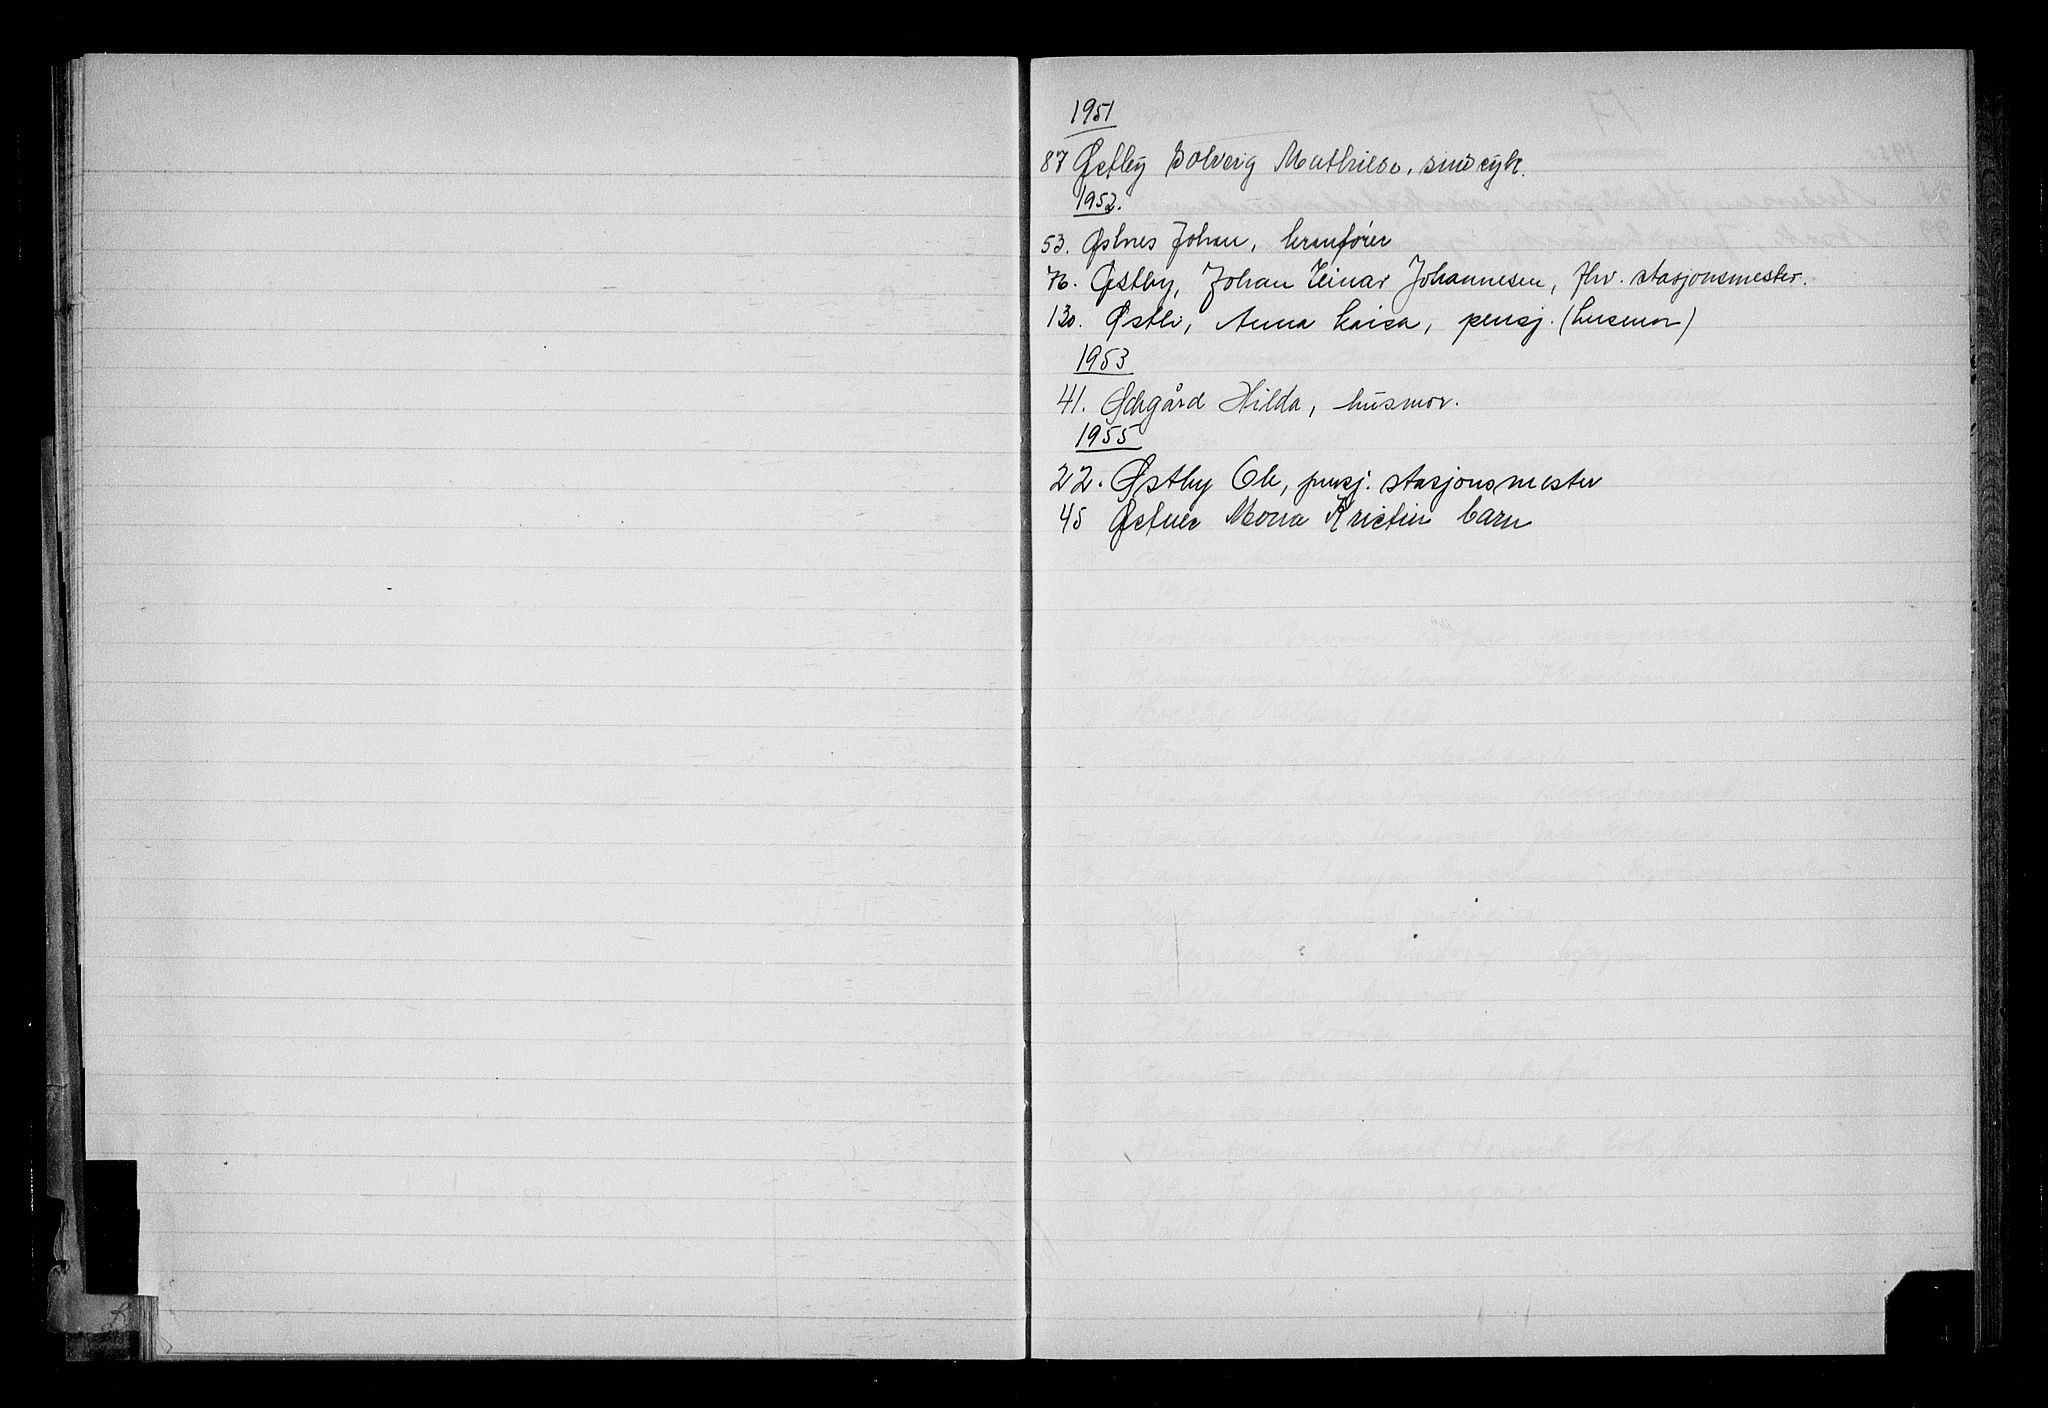 1951
87 Østby Solveig Mathilde, sindsyk.
1952.
53. Østnes Johan, kranfører
76. Østby, Johan Einar Johannesen, fhv. stasjonsmester.
130. Østli, Anna Kaisa, pensj. (husmor)
1953
41. Ødegård Hilda, húsmor.
1955
22. Østby Ole, pensj. stasjonsmester
45 Østnes Mona Kristin barn